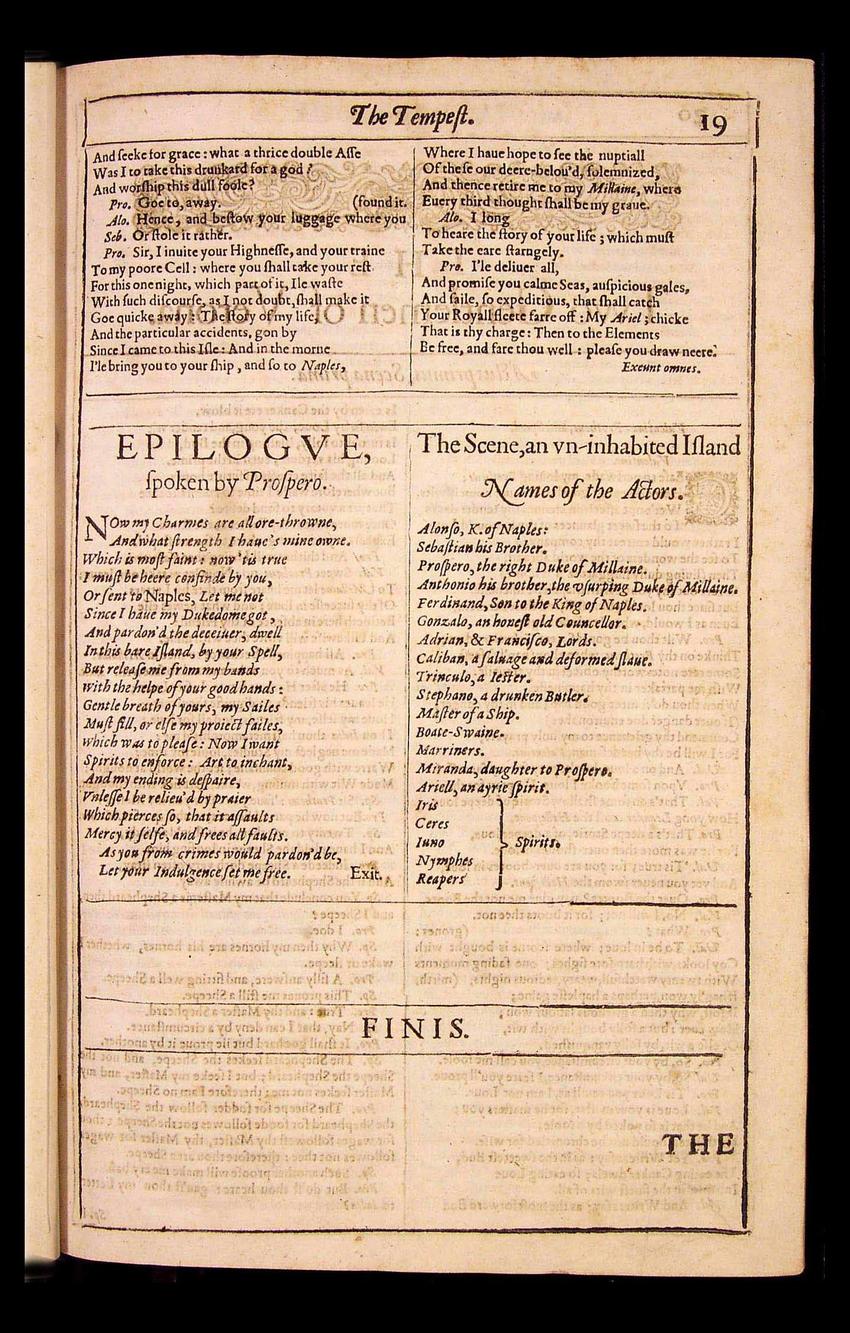 The Tempeſt.
19
And ſeeke for grace: what a thrice double Aſſe
Was I to take this drunkard for a god?
And worſhip this dull foole?
Pro. Goe to, away. (found it.
Alo. Hence, and beſtow your luggage where you
Seb. Or ſtole it rather.
Pro. Sir, I inuite your Highneſſe, and your traine
To my poore Cell: where you ſhall take your reſt
For this one night, which part of it, Ile waſte
With ſuch diſcourſe, as I not doubt, ſhall make it
Goe quicke away: The ſtory of my life,
And the particular accidents, gon by
Since I came to this Iſle: And in the morne
I'le bring you to your ſhip, and ſo to Naples,
Where I haue hope to ſee the nuptiall
Of theſe our deere-belou'd, ſolemnized,
And thence retire me to my Millaine, where
Euery third thought ſhall be my graue.
Alo. I long
To heare the ſtory of your life; which muſt
Take the eare ſtarngely.
Pro. I'le deliuer all,
And promiſe you calme Seas, auſpicious gales,
And ſaile, ſo expeditious, that ſhall catch
Your Royall fleete farre off: My Ariel; chicke
That is thy charge: Then to the Elements
Be free, and fare thou well: pleaſe you draw neere.
Exeunt omnes.
EPILOGVE,
ſpoken by Proſpero.
NOw my Charmes are all ore-throwne,
And what ſtrength I haue's mine owne.
Which is moſt faint: now 'tis true
I muſt be heere confinde by you,
Or ſent to Naples, Let me not
Since I haue my Dukedome got,
And pardon'd the deceiuer, dwell
In this bare Iſland, by your Spell,
But releaſe me from my bands
With the helpe of your good hands:
Gentle breath of yours, my Sailes
Muſt fill, or elſe my proiect failes,
Which was to pleaſe: Now I want
Spirits to enforce: Art to inchant,
And my ending is deſpaire,
Vnleſſe I be relieu'd by praier
Which pierces ſo, that it aſſaults
Mercy it ſelfe, and frees all faults.
As you from crimes would pardon'd be,
Let your Indulgence ſet me free. Exit.
The Scene, an vn-inhabited Iſland
Names of the Actors.
Alonſo, K. of Naples:
Sebaſtian his Brother.
Proſpero, the right Duke of Millaine.
Anthonio his brother, the vſurping Duke of Millaine.
Ferdinand, Son to the King of Naples.
Gonzalo, an honeſt old Councellor.
Adrian, & Franciſco, Lords.
Caliban, a ſaluage and deformed ſlaue.
Trinculo, a Ieſter.
Stephano, a drunken Butler.
Maſter of a Ship.
Boate-Swaine.
Marriners.
Miranda, daughter to Proſpero.
Ariell, an ayrie ſpirit.
Iris
Ceres
Iuno } Spirits.
Nymphes
Reapers
FINIS.
THE